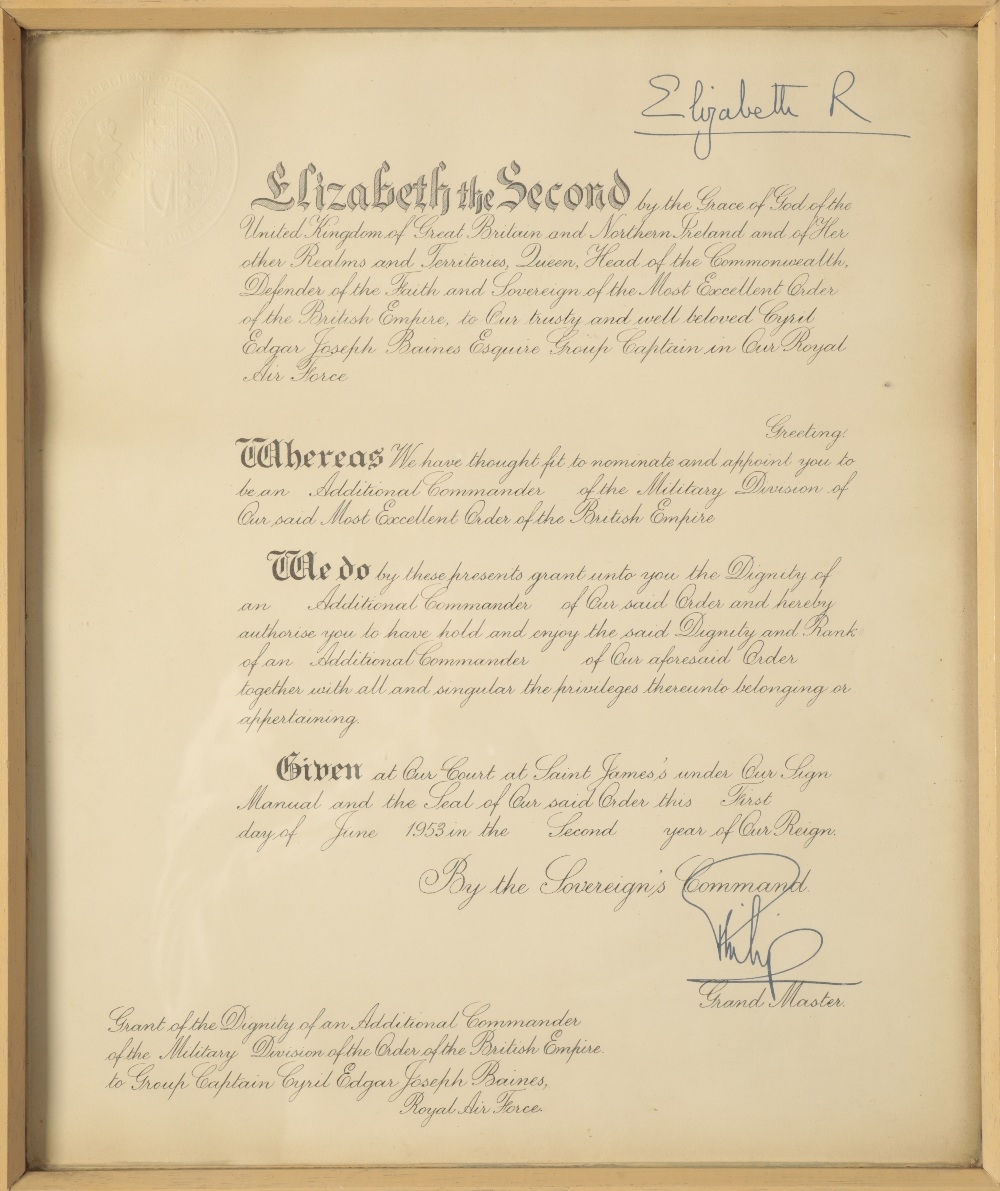 Elizabeth R
Elizabeth the Second by the Grace of God of the
United Kingdom of Great Britain and Northern Ireland and of Her
other Realms and Territories, Queen, Head of the Commonwealth,
Defender of the Faith and Sovereign of the Most Excellent Order
of the British Empire, to Our trusty and well beloved Cyril
Edgar Joseph Baines Esquire Group Captain in Our Royal
Air Force
Greeting.
Whereas We have thought fit to nominate and appoint you to
be an Additional Commander of the Military Division of
Our said Most Excellent Order of the British Empire
We do by these presents grant unto you the Dignity of
an Additional Commander of Our said Order and hereby
authorise you to have hold and enjoy the said Dignity and Rank
of an Additional Commander of Our aforesaid Order
together with all and singular the privileges thereunto belonging or
appertaining.
Given at Our Court at Saint James's under Our Sign
Manual and the Seal of Our said Order this First
day of June 1953 in the Second year of Our Reign.
By the Sovereign's Command.
Philip
Grand Master.
Grant of the Dignity of an Additional Commander
of the Military Division of the Order of the British Empire.
to Group Captain Cyril Edgar Joseph Baines,
Royal Air Force.